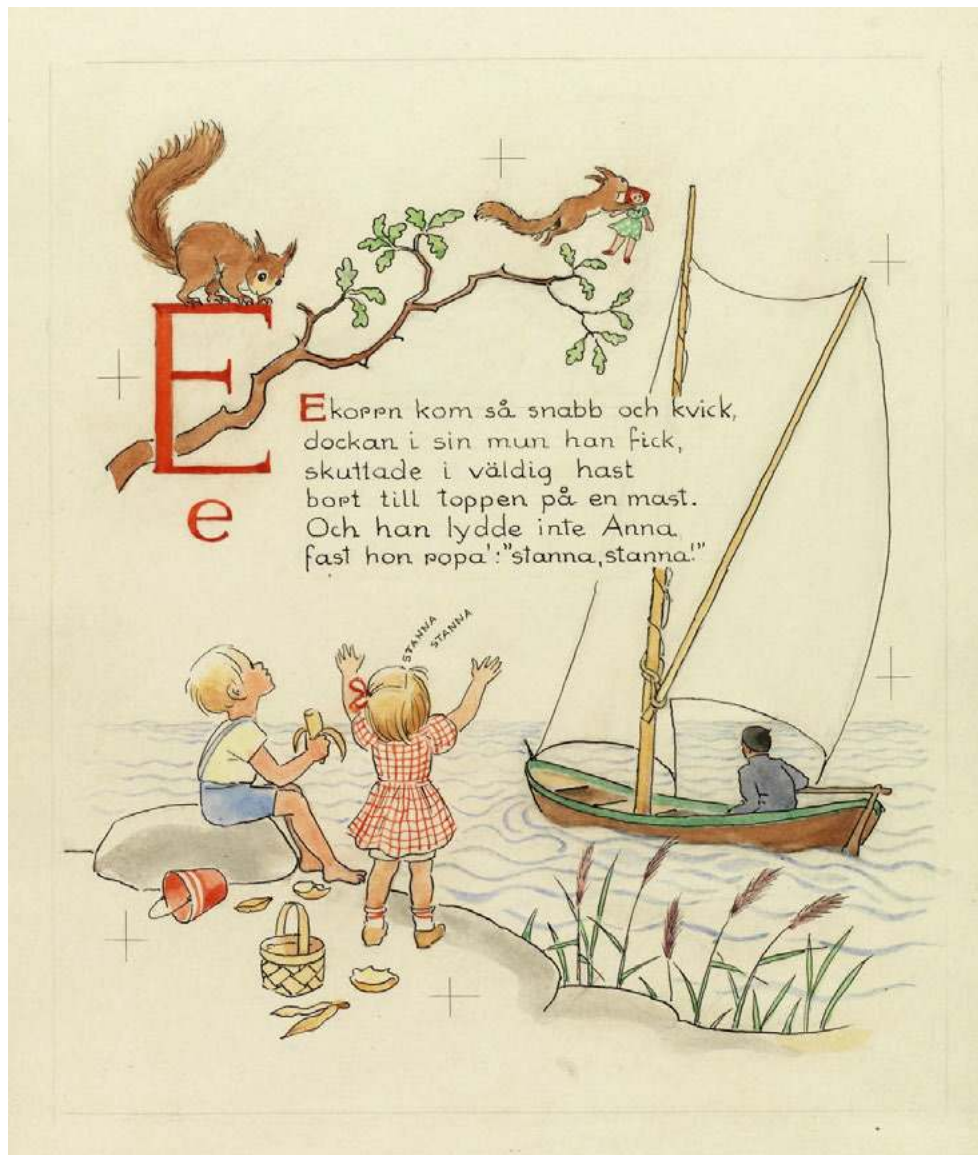 E
e
Ekorrn kom så snabb och kvick,
dockan i sin mun han fick,
skuttade i väldig hast
bort till toppen på en mast.
Och han lydde inte Anna
fast hon ropa': "stanna, stanna!"
STANNA
STANNA